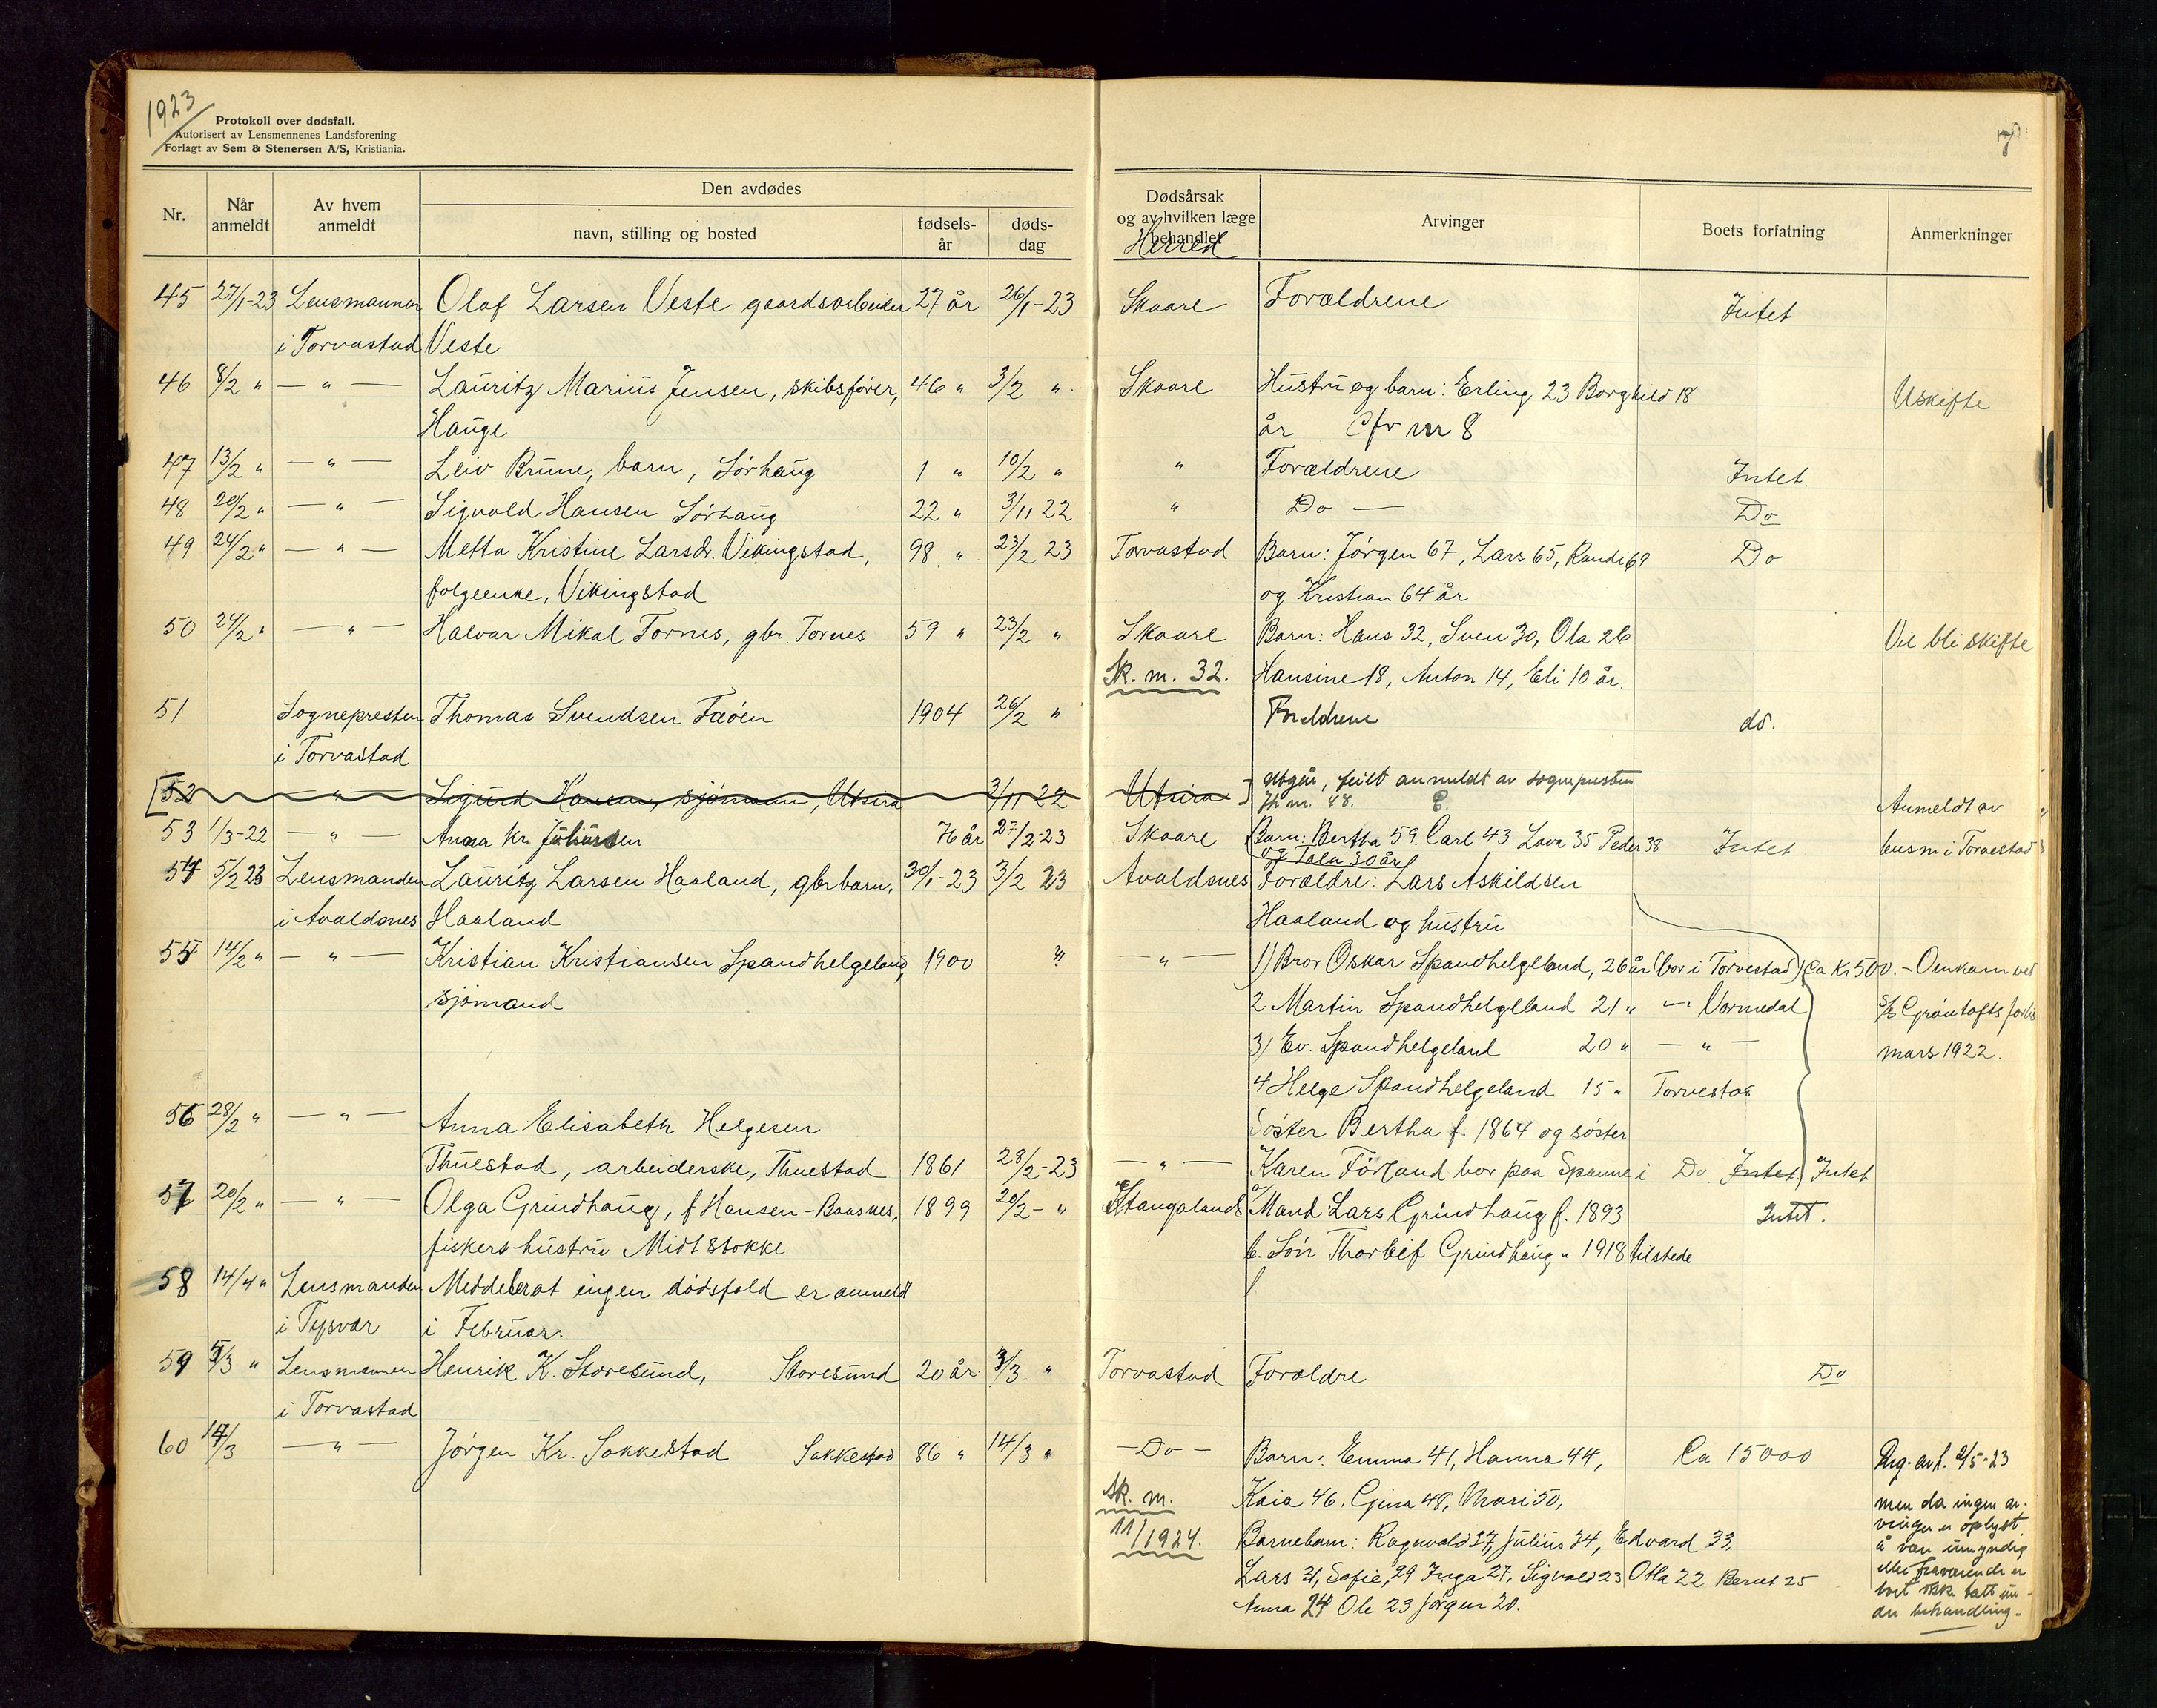 1923
Protokoll over dødsfall.
Autorisert av Lensmennenes Landsforening
Forlagt av Sem & Stenersen A/S, Kristiania.
7
Nr.
Når anmeldt
Av hvem anmeldt
Den avdødes
navn, stilling og bosted
fødsels-år
døds-dag
Dødsårsak og av hvilken læge behandlet
Herred
Arvinger
Boets forfatning
Anmerkninger
45 27/1-23 Lensmannen Olaf Larsen Veste gaardsarbeider 27 år 26/1-23 Skaare Forældrene Intet
i Torvastad Veste
46 8/2 " — " — Lauritz Marius Jensen, skibsfører, 46 " 3/2 " Skaare Hustru og barn: Erling 23 Borghild 18 Uskifte
Hauge år Cfr nr 8
47 13/2 " — " — Leiv Brune, barn, Sørhaug 1 " 10/2 " " Forældrene Intet.
48 20/2 " — " — Sigvald Hansen Sørhaug 22 " 3/11 22 " Do — Do
49 24/2 " — " — Metta Kristine Larsdr. Vikingstad, 98 " 23/2 23 Torvastad Barn: Jørgen 67, Lars 65, Randi 69 Do
folgeenke, Vikingstad og Kristian 64 år
50 24/2 " — " — Halvar Mikal Tornes, gbr. Tornes 59 " 23/2 " Skaare Barn: Hans 32, Sven 30, Ola 26 Vil bli skifte
Sk. m. 32. Hansine 18, Anton 14, Eli 10 år.
51 Sognepresten Thomas Svendsen Fæøen 1904 26/2 " Foreldrene do.
i Torvastad
[52 — " — Sigurd Hansen, sjømann, Utsira 3/11 22 Utsira ] utgår, feilt anmeldt av sognepresten
jfr nr. 48. Anmeldt av
53 1/3-22 — " — Anna Kr. Juliussen 76 år 27/2-23 Skaare Barn: Bertha 59. Carl 43 Lava 35 Peder 38 Intet lensm i Torvestad
30 år
54 5/2 23 Lensmanden Lauritz Larsen Haaland, gbr barn, 30/1-23 3/2 23 Avaldsnes Forældre: Lars Askildsen
i Avaldsnes Haaland Haaland og hustru
55 14/2 " — " — Kristian Kristiansen Spandhelgeland, 1900 ? — " — 1) Bror Oskar Spandhelgeland, 26 år (bor i Torvestad) Ca Kr 500. - Omkom ved
sjømand 2 Martin Spandhelgeland 21 " — " Vormedal S/S Grøntofts forlis
3) Ev. Spandhelgeland 20 " — " — mars 1922.
4 Helge Spandhelgeland 15 " Torvestad
56 28/2 " — " — Anna Elisabeth Helgesen Søster Bertha f. 1864 og søster
Thuestad, arbeiderske, Thuestad 1861 28/2-23 — " — Karen Førland bor paa Spanne i Do Intet Intet
57 20/2 " — " — Olga Grindhaug, f Hansen - Baasnes, 1899 20/2- " Stangaland a/ Mand Lars Grindhaug f. 1893 Intet.
fiskers hustru Midtstokke b. Søn Thorleif Grindhaug " 1918 tilstede
58 14/4 " Lensmanden Meddeler at ingen dødsfald er anmeldt
i Tysvær i Februar.
59 5/3 " Lensmannen Henrik K. Storesund, Storesund 20 år 3/3 " Torvastad Forældre Do
i Torvastad
60 17/3 — " — Jørgen Kr. Sokkestad Sokkestad 86 " 14/3 " — Do — Barn: Emma 41, Hanna 44, Ca 15000 Reg. avh. 2/5-23
Sk. m. Kaia 46. Gina 48, Mari 50, men da ingen ar-
11/1924. Barnebarn: Ragnvald 37, Julius 34, Edvard 33, vinger er oplyst
å være umyndig
Lars 31, Sofie, 29 Inga 27, Sigvald 23 Otla 22 Berent 25 eller fraværende er
Anna 24 Ole 23 Jørgen 20. boet ikke tatt un-
der behandling.